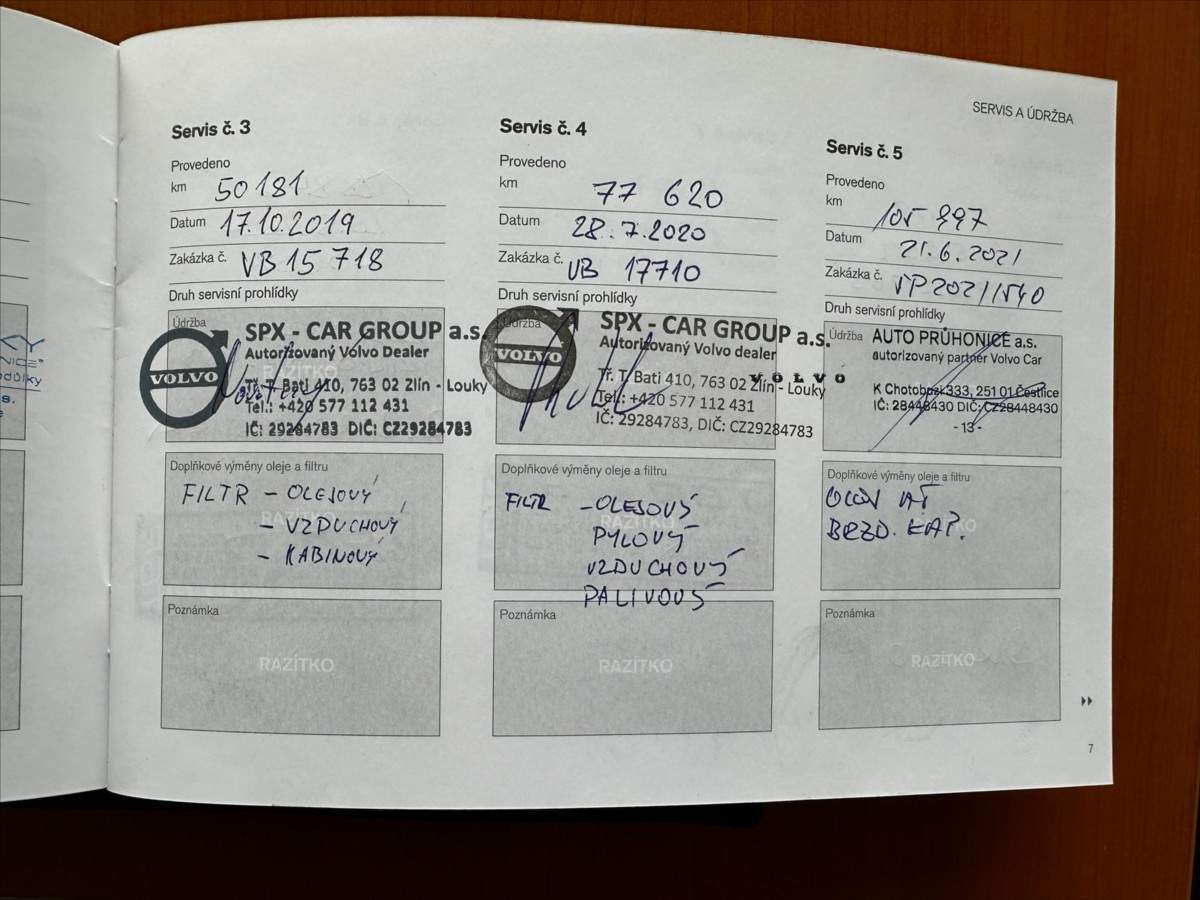 SERVIS A ÚDRŽBA
Servis č. 3
Provedeno
km 50181
Datum 17.10.2019
Zakázka č. VB 15 718
Druh servisní prohlídky
Údržba
VOLVO
SPX - CAR GROUP a.s.
Autorizovaný Volvo Dealer
Tř. T. Bati 410, 763 02 Zlín - Louky
Tel.: +420 577 112 431
IČ: 29284783 DIČ: CZ29284783
RAZÍTKO
Doplňkové výměny oleje a filtru
FILTR - OLEJOVÝ
- VZDUCHOVÝ
- KABINOVÝ
RAZÍTKO
Poznámka
RAZÍTKO
Servis č. 4
Provedeno
km 77 620
Datum 28.7.2020
Zakázka č. VB 17710
Druh servisní prohlídky
Údržba
VOLVO
SPX - CAR GROUP a.s.
Autorizovaný Volvo dealer
Tř. T. Bati 410, 763 02 Zlín - Louky
Tel.: +420 577 112 431
IČ: 29284783, DIČ: CZ29284783
Doplňkové výměny oleje a filtru
FILTR - OLEJOVÝ
PYLOVÝ
VZDUCHOVÝ
PALIVOVÝ
RAZÍTKO
Poznámka
RAZÍTKO
Servis č. 5
Provedeno
km
Datum 21.6.2021
Zakázka č.
Druh servisní prohlídky
Údržba
VOLVO
AUTO PRŮHONICE a.s.
autorizovaný partner Volvo Car
K Chotobuzi 333, 251 01 Čestlice
IČ: 28448430 DIČ: CZ28448430
- 13 -
Doplňkové výměny oleje a filtru
BRZD. KAP.
Poznámka
RAZÍTKO
7